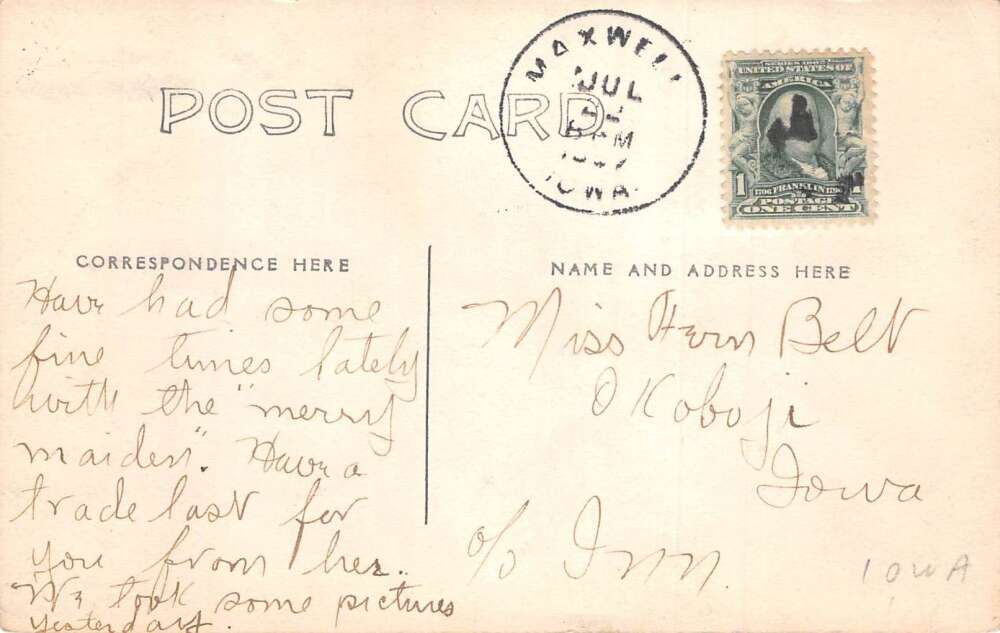 POST CARD
MAXWELL
JUL
5 PM
IOWA.
SERIES 1902
UNITED STATES OF
AMERICA
1
1706 FRANKLIN 1790
POSTAGE
ONE CENT
CORRESPONDENCE HERE
Have had some
fine times lately
with the "merry
maiden". Have a
trade last for
you from her.
We took some pictures
yesterday.
NAME AND ADDRESS HERE
Miss Fern Belt
Okoboji
Iowa
c/o Inn.
IOWA